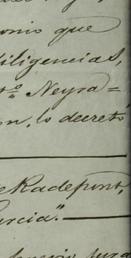 onio que
diligencias,
to. Neyra=
on, lo decretó
e Radepont,
urcia."